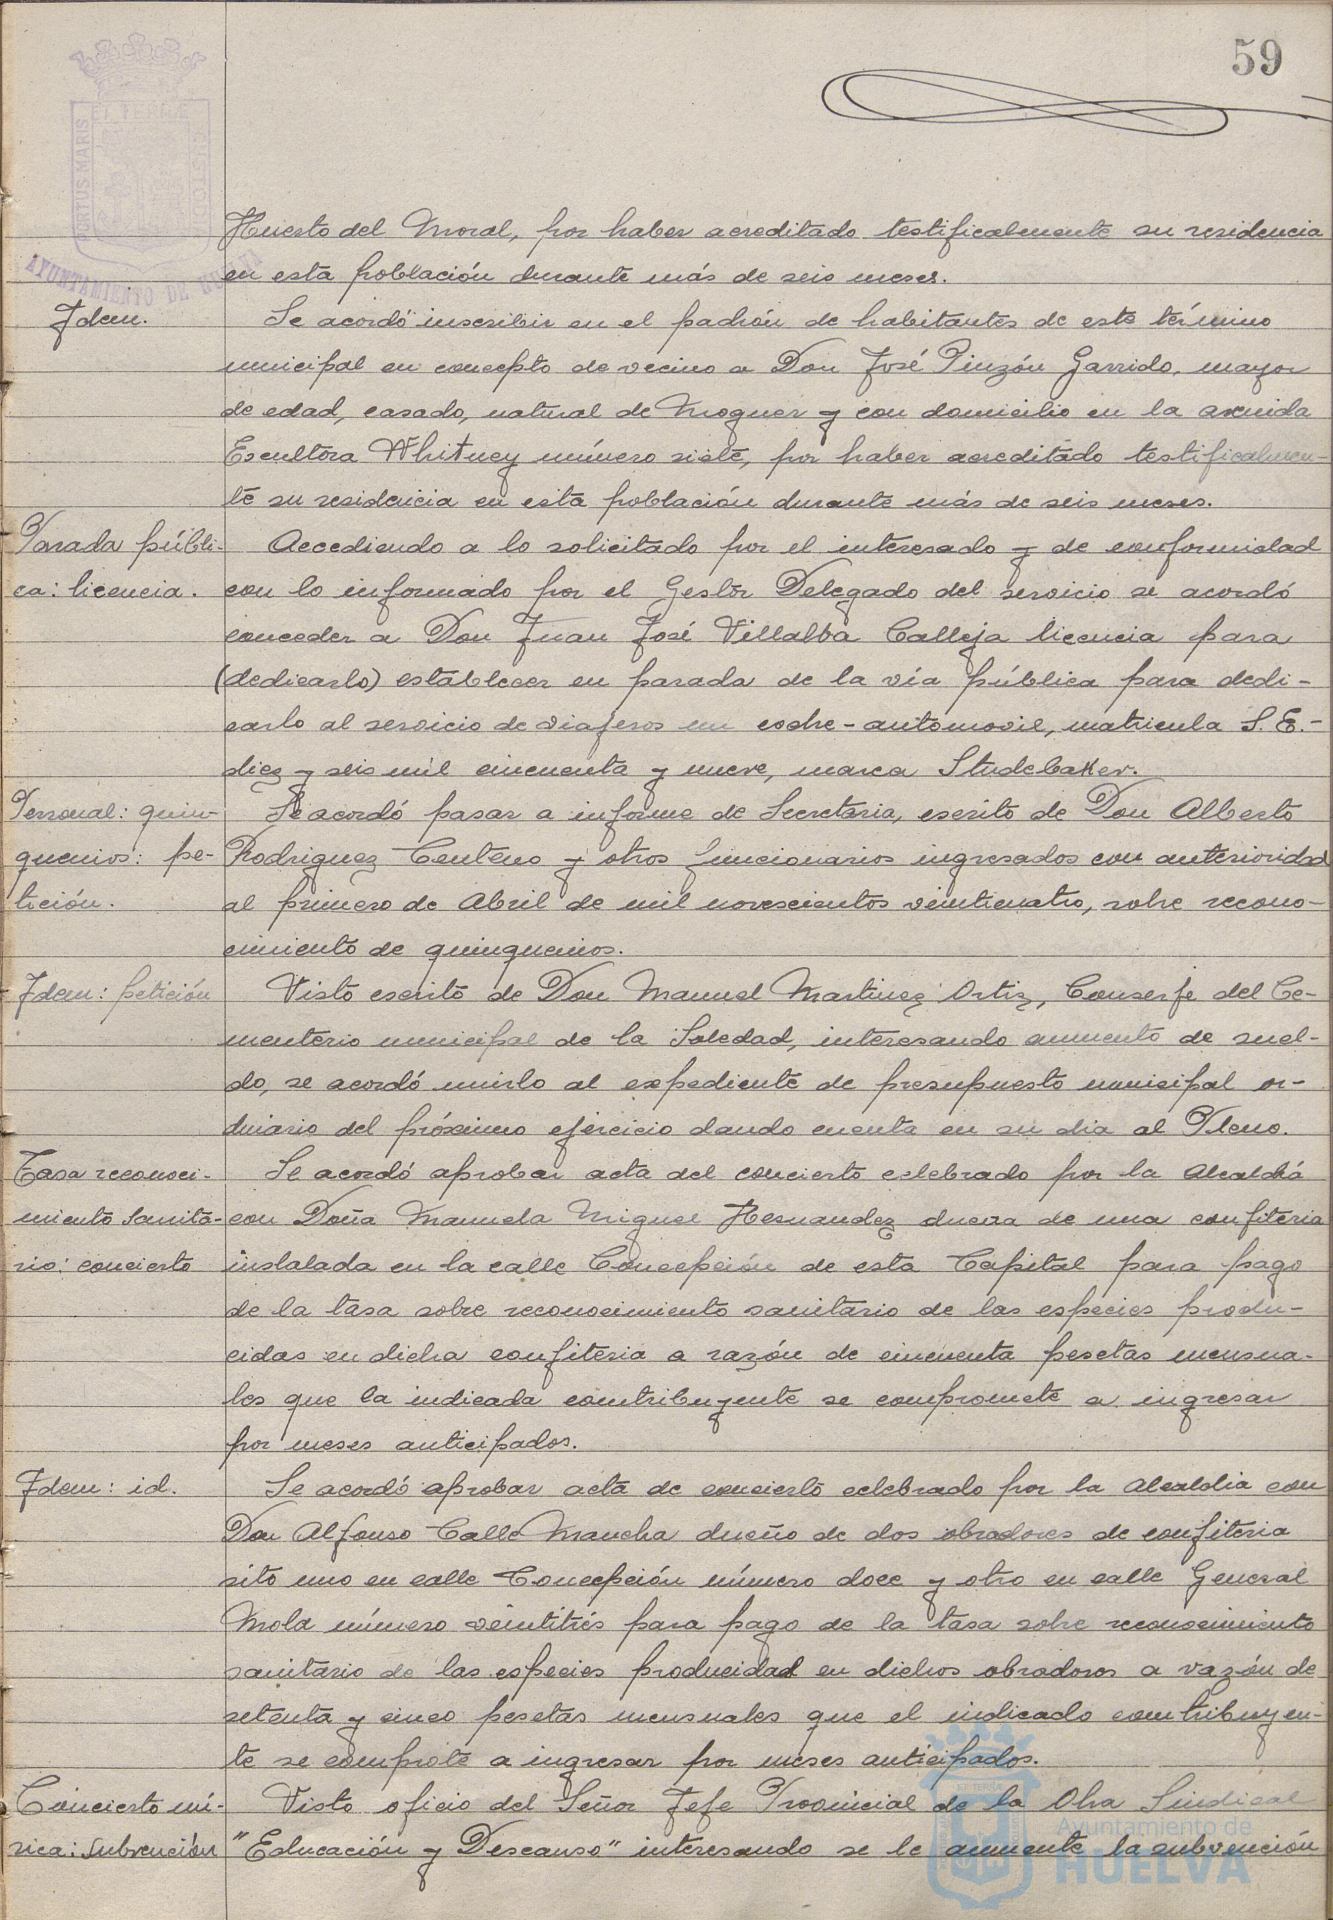 59
PORTUS MARIS
ET TERRÆ
CUSTODIA
AYUNTAMIENTO DE HUELVA
Huerto del Moral, por haber acreditado testificalmente su residencia
en esta población durante más de seis meses.
Idem.
Se acordó inscribir en el padrón de habitantes de este término
municipal en concepto de vecino a Don José Pinzón Garrido, mayor
de edad, casado, natural de Moguer y con domicilio en la avenida
Escultora Whitney número siete, por haber acreditado testificalmen-
te su residencia en esta población durante más de seis meses.
Parada públi-
ca: licencia.
Accediendo a lo solicitado por el interesado y de conformidad
con lo informado por el Gestor Delegado del servicio se acordó
conceder a Don Juan José Villalba Calleja licencia para
(dedicarlo) establecer en parada de la vía pública para dedi-
carlo al servicio de viajeros un coche-automovil, matricula S.E.-
diez y seis mil cincuenta y nueve, marca Studebaker.
Personal: quin-
quenios: pe-
tición.
Se acordó pasar a informe de Secretaria, escrito de Don Alberto
Rodriguez Centeno y otros funcionarios ingresados con anterioridad
al primero de Abril de mil novescientos veinticuatro, sobre recono-
cimiento de quinquenios.
Idem: petición
Visto escrito de Don Manuel Martinez Ortiz, Conserje del Ce-
menterio municipal de la Soledad, interesando aumento de suel-
do, se acordó unirlo al expediente de presupuesto municipal or-
dinario del próximo ejercicio dando cuenta en su dia al Pleno.
Tasa reconoci-
miento sanita-
rio: concierto
Se acordó aprobar acta del concierto celebrado por la Alcaldiá
con Doña Manuela Miguel Hernandez dueña de una confiteria
instalada en la calle Concepción de esta Capital para pago
de la tasa sobre reconocimiento sanitario de las especies produ-
cidas en dicha confiteria a razón de cincuenta pesetas mensua-
les que la indicada contribuyente se compromete a ingresar
por meses anticipados.
Idem: id.
Se acordó aprobar acta de concierto celebrado por la Alcaldia con
Don Alfonso Calle Mancha dueño de dos obradores de confiteria
sito uno en calle Concepción número doce y otro en calle General
Mola número veintitrés para pago de la tasa sobre reconocimiento
sanitario de las especies producidad en dichos obradores a razón de
setenta y cinco pesetas mensuales que el indicado contribuyen-
te se comprote a ingresar por meses anticipados.
Concierto mú-
sica: subvención
Visto oficio del Señor Jefe Provincial de la Obra Sindical
"Educación y Descanso" interesando se le aumente la subvención
Ayuntamiento de
HUELVA